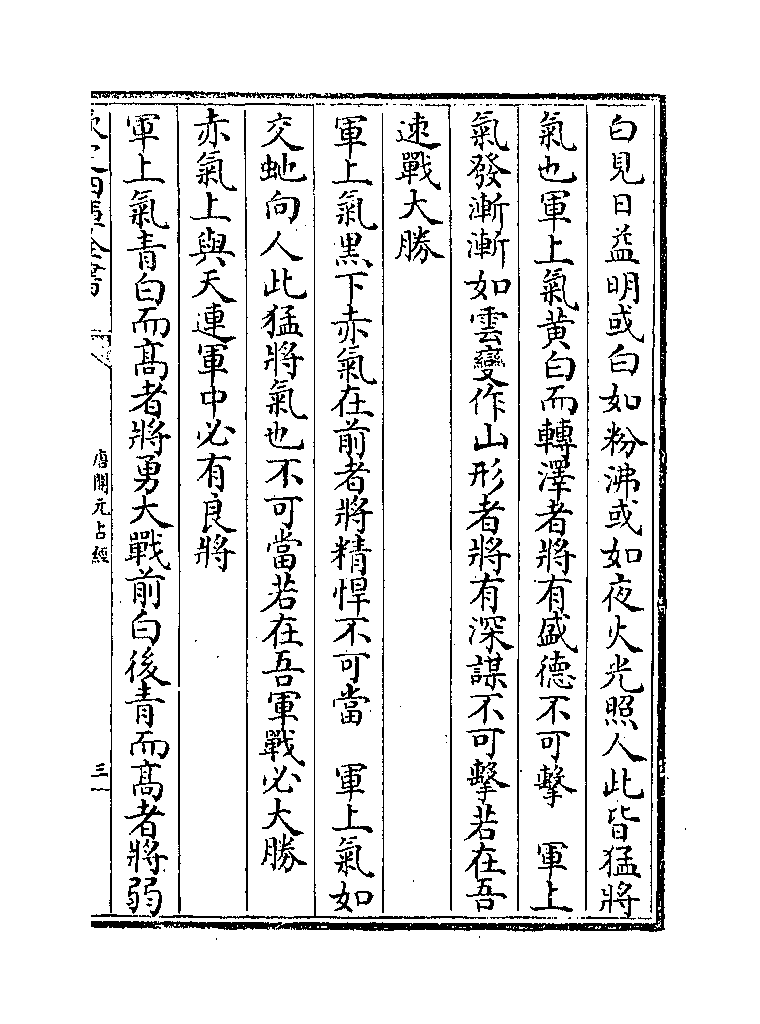 白見日益明或白如粉沸或如夜火光照人此皆猛將
氣也軍上氣黄白而轉澤者將有盛德不可擊　軍上
氣發漸漸如雲變作山形者將有深謀不可擊若在吾
速戰大勝
軍上氣黒下赤氣在前者將精悍不可當　軍上氣如
交虵向人此猛將氣也不可當若在吾軍戰必大勝
赤氣上與天連軍中必有良將
軍上氣青白而髙者將勇大戰前白後青而髙者將弱
欽定四庫全書
唐開元占經
三